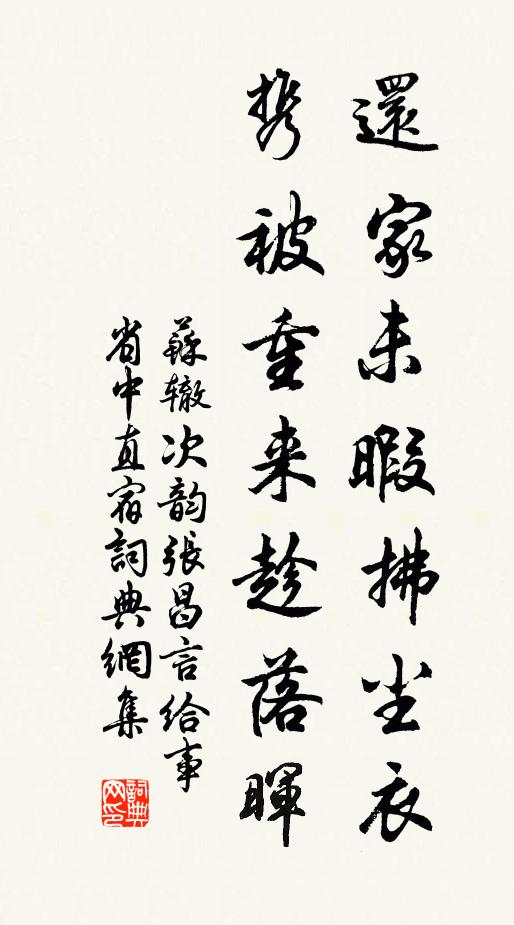 還家未暇拂尘衣
携被重来趁落暉
蘇辙次韵張昌言给事
省中直宿詞典網集
詞典网印